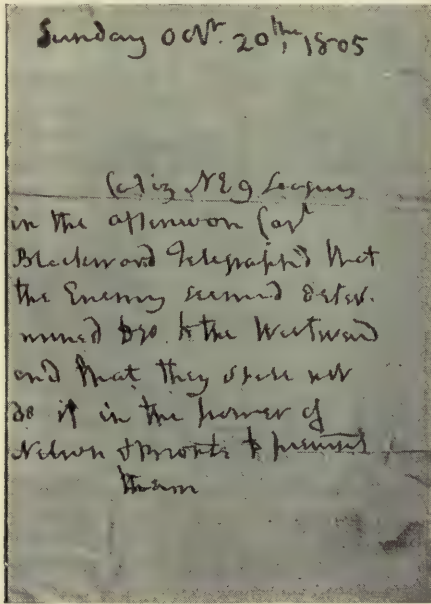 Sunday Octr. 20th, 1805
Cadiz NE 9 Leagues
in the afternoon Capt
Blackwood Telegraphd that
the Enemy seemed deter
mined to go to the Westward
and that they shall not
do if in the power of
Nelson & Bronte to prevent
them